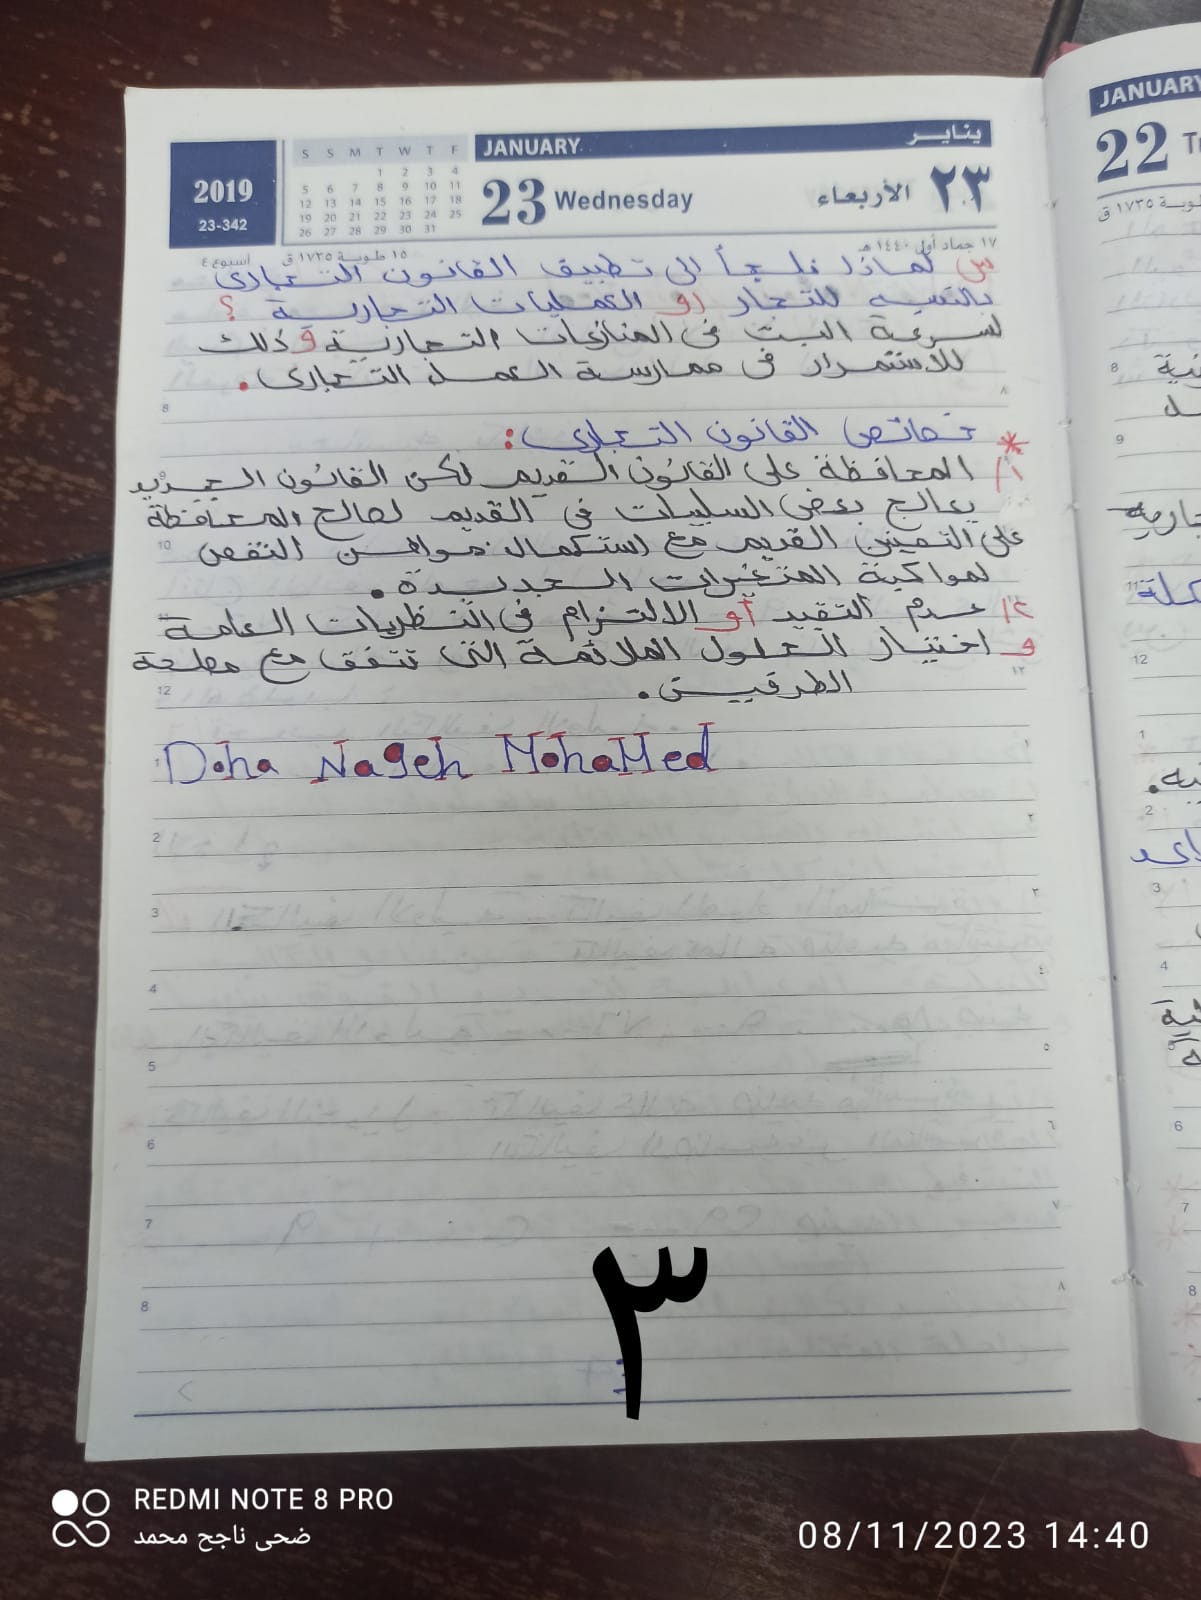 JANUARY يناير
2019
23-342
S S M T W T F
1 2 3 4
5 6 7 8 9 10 11
12 13 14 15 16 17 18
19 20 21 22 23 24 25
26 27 28 29 30 31
23 Wednesday الأربعاء ٢٣
١٧ جماد أول ١٤٤٠ هـ ١٥ طوبة ١٧٣٥ ق أسبوع ٤
س لماذا نلجأ الى تطبيق القانون التجارى
بالنسبه للتجار او العمليات التجارية ؟
لسرعة البت فى المنازعات التجارية و ذلك
للاستمرار فى ممارسة العمل التجارى.
8 ٨
* خصائص القانون التجارى:
١/ المحافظة على القانون القديم لكن القانون الجديد
9
يعالج بعض السلبيات فى القديم لصالح المحافظة
على التقنين القديم مع استكمال مواطن النقص
10
لمواكبة المتغيرات الجديدة.
٢/ عدم التقيد أو الالتزام فى النظريات العامة
و اختيار الحلول الملائمة التى تتفق مع مصلحة
الطرفين.
12 ١٢
Doha Nageh MohaMed
1 ١
2 ٢
3 ٣
4 ٤
5 ٥
6 ٦
7 ٧
8 ٨
٣
JANUARY
22
طوبة ١٧٣٥ ق
8
9
12
1
2
3
4
6
7
8
REDMI NOTE 8 PRO
ضحى ناجح محمد
08/11/2023 14:40